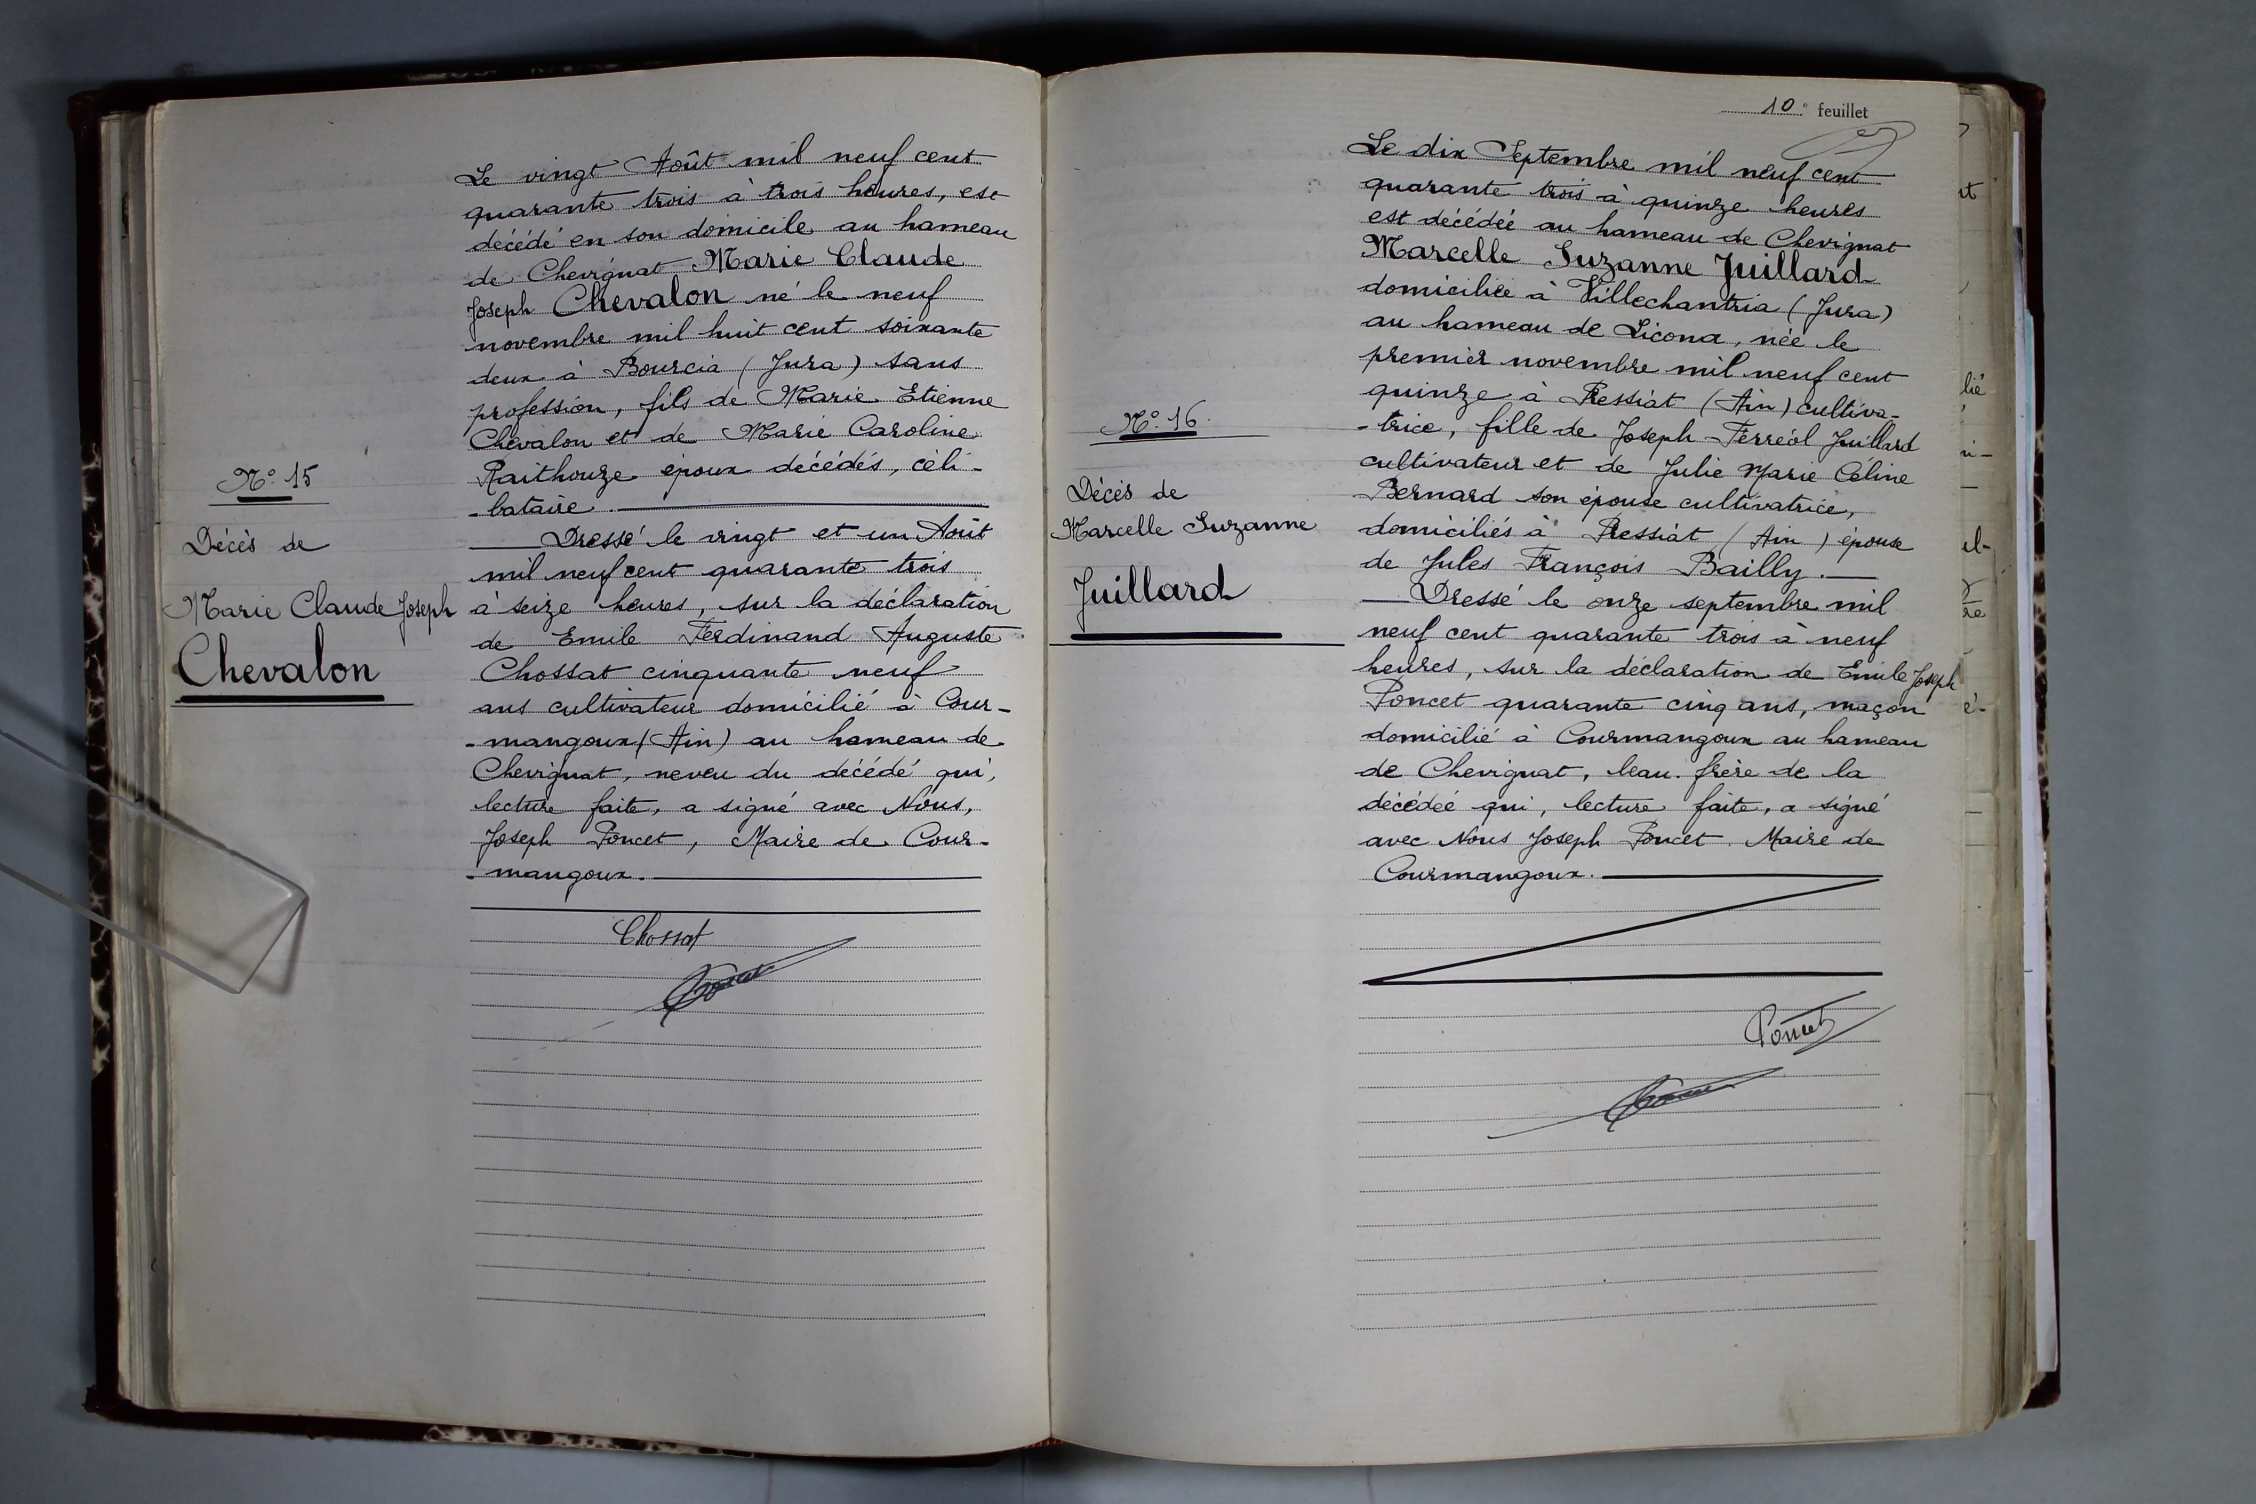 N° 15
Décès de
Marie Claude Joseph
Chevalon
Le vingt Août mil neuf cent
quarante trois à trois heures, est
décédé en son domicile au hameau
de Chevignat Marie Claude
Joseph Chevalon né le neuf
novembre mil huit cent soixante
deux à Bourcia (Jura) sans
profession, fils de Marie Etienne
Chevalon et de Marie Caroline
Raithouze époux décédés, céli-
-bataire.
Dressé le vingt et un Août
mil neuf cent quarante trois
à seize heures, sur la déclaration
de Emile Ferdinand Auguste
Chossat cinquante neuf
ans cultivateur domicilié à Cour-
-mangoux (Ain) au hameau de
Chevignat, neveu du décédé qui,
lecture faite, a signé avec Nous,
Joseph Poncet, Maire de Cour-
-mangoux.
Chossat
10e feuillet
N° 16
Décès de
Marcelle Suzanne
Juillard
Le dix Septembre mil neuf cent
quarante trois à quinze heures
est décédée au hameau de Chevignat
Marcelle Suzanne Juillard
domiciliée à Villechantria (Jura)
au hameau de Liconx, née le
premier novembre mil neuf cent
quinze à Pressiat (Ain) cultiva-
-trice, fille de Joseph Ferréol Juillard
cultivateur et de Julie Marie Céline
Bernard son épouse cultivatrice,
domiciliés à Pressiat (Ain) épouse
de Jules François Bailly.
Dressé le onze septembre mil
neuf cent quarante trois à neuf
heures, sur la déclaration de Emile Joseph
Poncet quarante cinq ans, maçon
domicilié à Courmangoux au hameau
de Chevignat, beau-frère de la
décédée qui, lecture faite, a signé
avec Nous Joseph Poncet. Maire de
Courmangoux.
Poncet